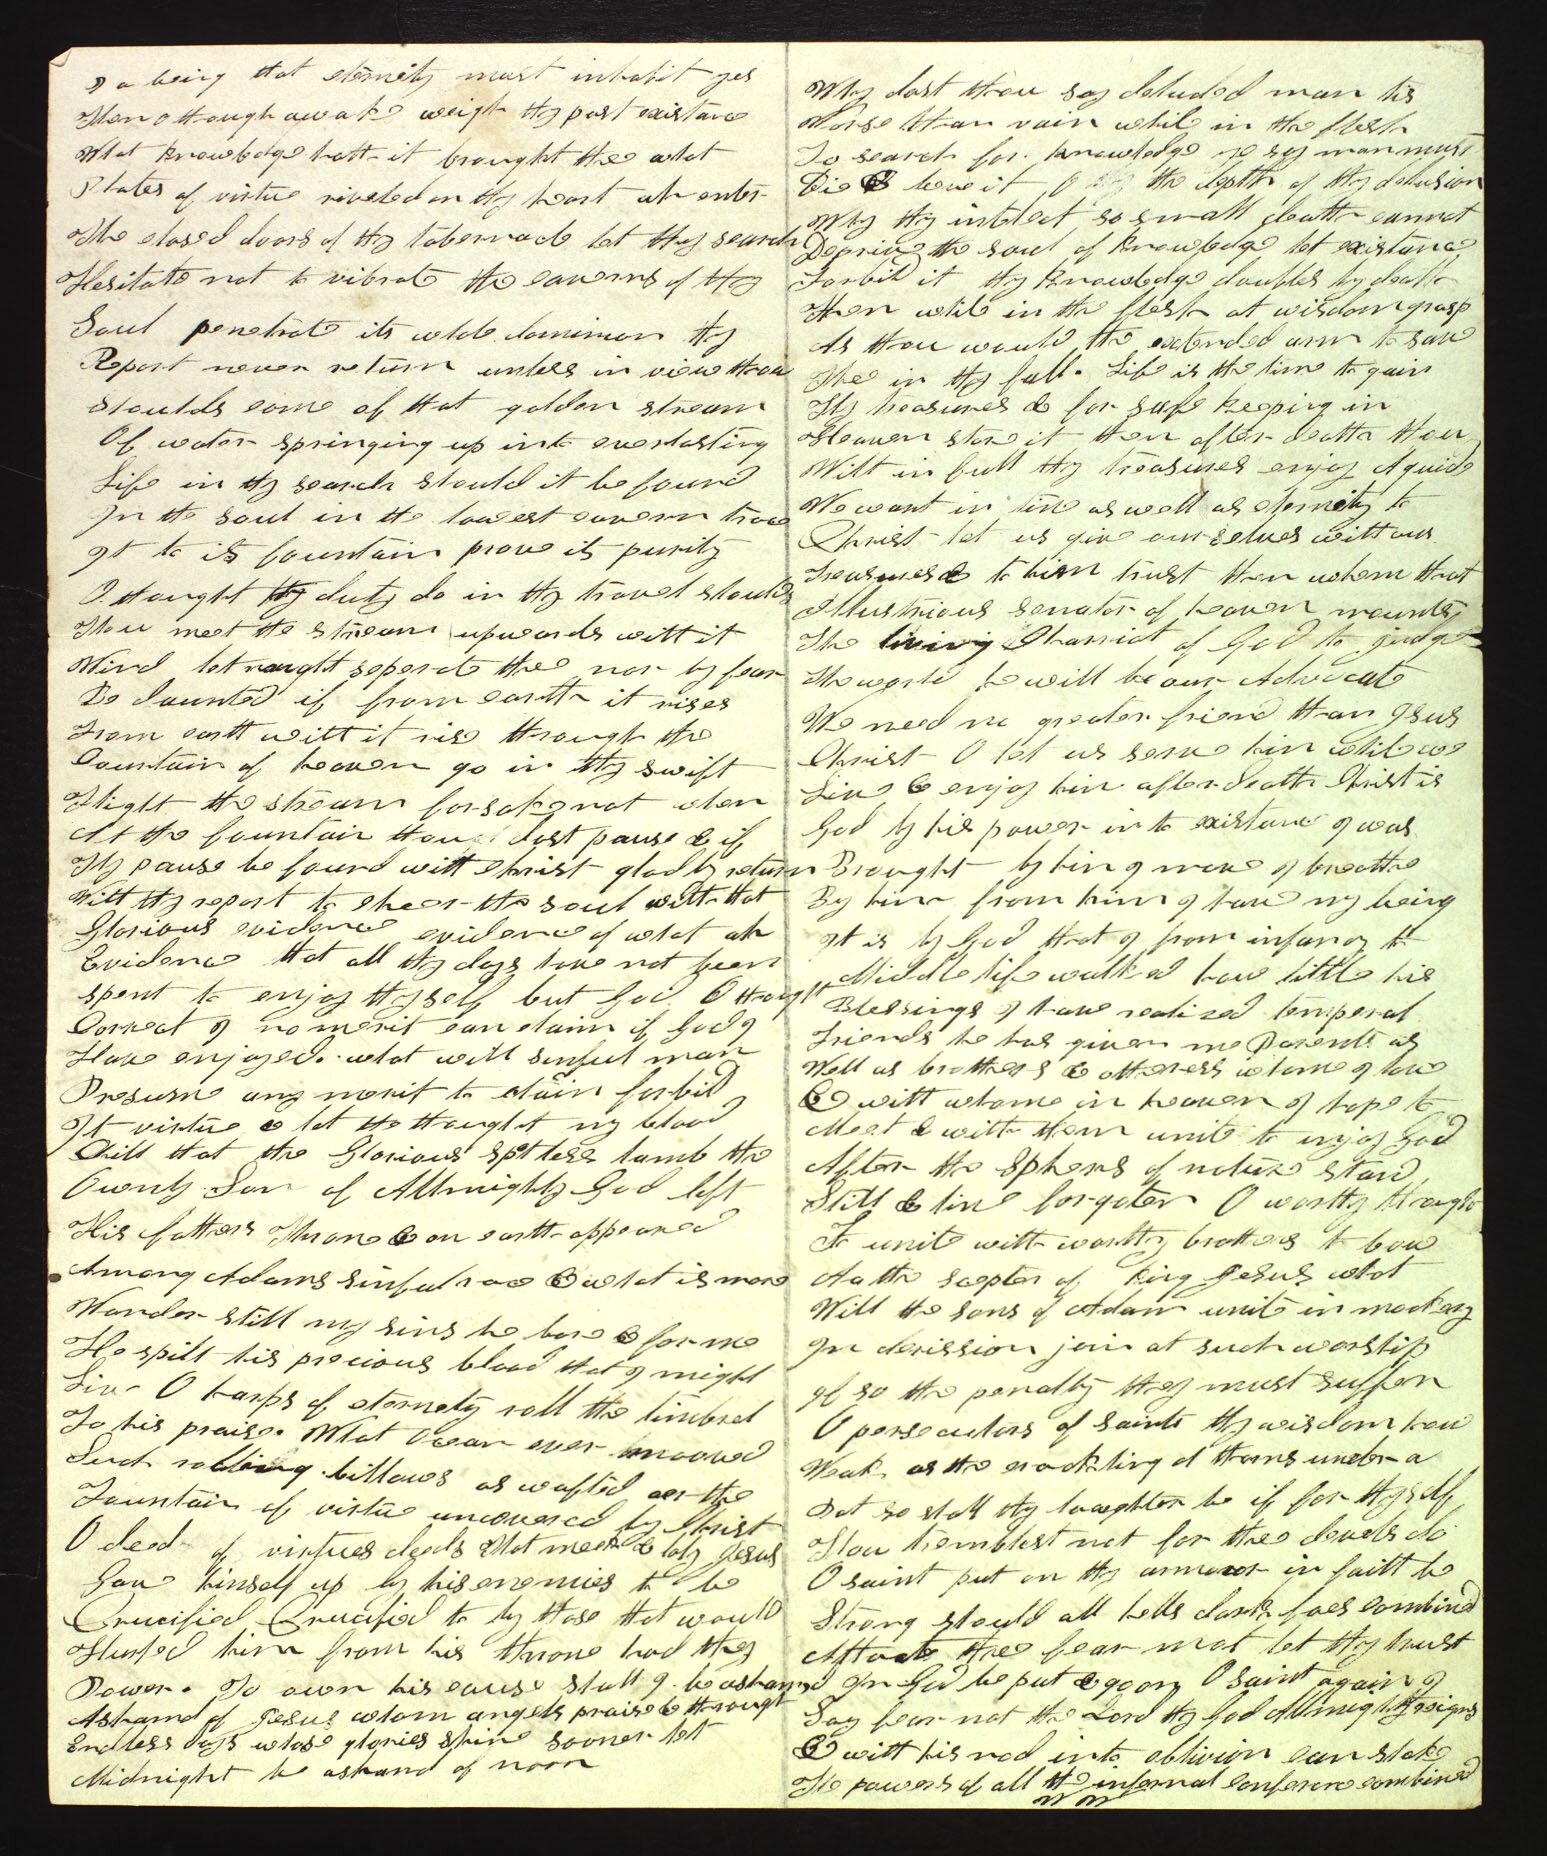 I a being that eternity must inhabit yes
Then o though awake weigh thy past existance
What knowledge hath it brought thee what
Plates of virtue riveted on thy heart ah enter
The closed doors of thy tabernacle let thy search
Hesitate not to vibrate the caverns of thy
Soul penetrate its whole dominion thy
Report never return unless in view thou
Shoulds come of that golden stream
Of water springing up into everlasting
Life in thy search should it be found
In the soul in the lowest cavern trace
It to its fountain prove its purity
O thought thy duty do in thy travel shoulds
Thou meet the stream upwards with it
Wind let naught seperate thee nor by fear
Be daunted if from earth it rises
From earth with it rise through the
Countain of heaven go in thy swift
Flight the stream forsake not when
At the fountain thou dost pause & if
Thy pause be found with Christ gladly return
With thy report to cheer the soul with that
Glorious evidence evidence of what ah
Evidence that all thy days have not been
spent to enjoy thyself but God O thought
Correct I no merit can claim if God I
Have enjoyed. what will sinful man
Presume any merit to claim forbid
It virtue & let the thought my blood
Chill that the Glorious spotless lamb the
Ownly Son of Allmighty God left
His fathers Throne & on earth appeared
Among Adams sinful race & what is more
Wonder still my sins he bore & for me
He spilt his precious blood that I might
Live O harps of eternety roll the timbrel
To his praise. What Ocean ever mooved
Such rolling billows as wafted oer the
Fountain of virtue uncovered by Christ
O deed of virtues deeds What meek & holy Jesus
Gave himself up by his enemies to be
Crucified Crucified to by those that would
Hurled him from his throne had they
Power. To own his cause shall I be ashamed
Ashamd of Jesus whom angels praise & through
Endless days whose glories shine sooner let
Midnight be ashamd of noon
Why dost thou say deluded man tis
Worse than vain while in the flesh
To search for knowledge ye say man must
Die & leave it O the depth of thy delusion
Why thy intelect so small death cannot
Deprive the soul of knowledge let existance
Forbid it thy knowledge doubles by death
Then while in the flesh at wisdom grasp
As thou would the extended arm to save
Thee in thy fall. Life is the time to gain
Thy treasures & for safe keeping in
Heaven store it then after death thou
Wilt in full thy treasures enjoy A guide
We want in time as well as eternity to
Christ let us give ourselves with our
Treasures & to him trust then whom that
Illustrious senator of heaven mounts
The living Charriot of God to judge
The world he will be our Advocate
We need no greater friend than Jsus
Christ O let us serve him while we
Live & enjoy him after death Christ is
God by his power into existance I was
Brought by him I move I breathe
By him from him I have my being
It is by God that I from infancy to
Middle life walked how little his
Blessings I have realized temperal
Friends he has given me Parents as
Well as brothers & others whome I love
& with whome in heaven I hope to
Meet & with them unite to enjoy God
After the Spheres of nature stand
Still & live forgoten O worthy thought
To unite with worlthy brothers to bow
At the scepter of King Jesus what
Will the sons of Adam unite in mockery
In derission join at such worship
If so the penalty they must suffer
O persecutors of saints thy wisdom how
Weak as the crackling of thorns under a
Pot so shall thy laughter be if for thyself
Thou tremblest not for thee devels do
O saint put on thy armour in faith be
Strong should all hells dark foes combined
Attact thee fear not let thy trust
In God be put & go on O saint again I
Say fear not the Lord thy God Allmighty reigns
& with his rod into oblivion can shake
The powers of all the infernal conferance combined